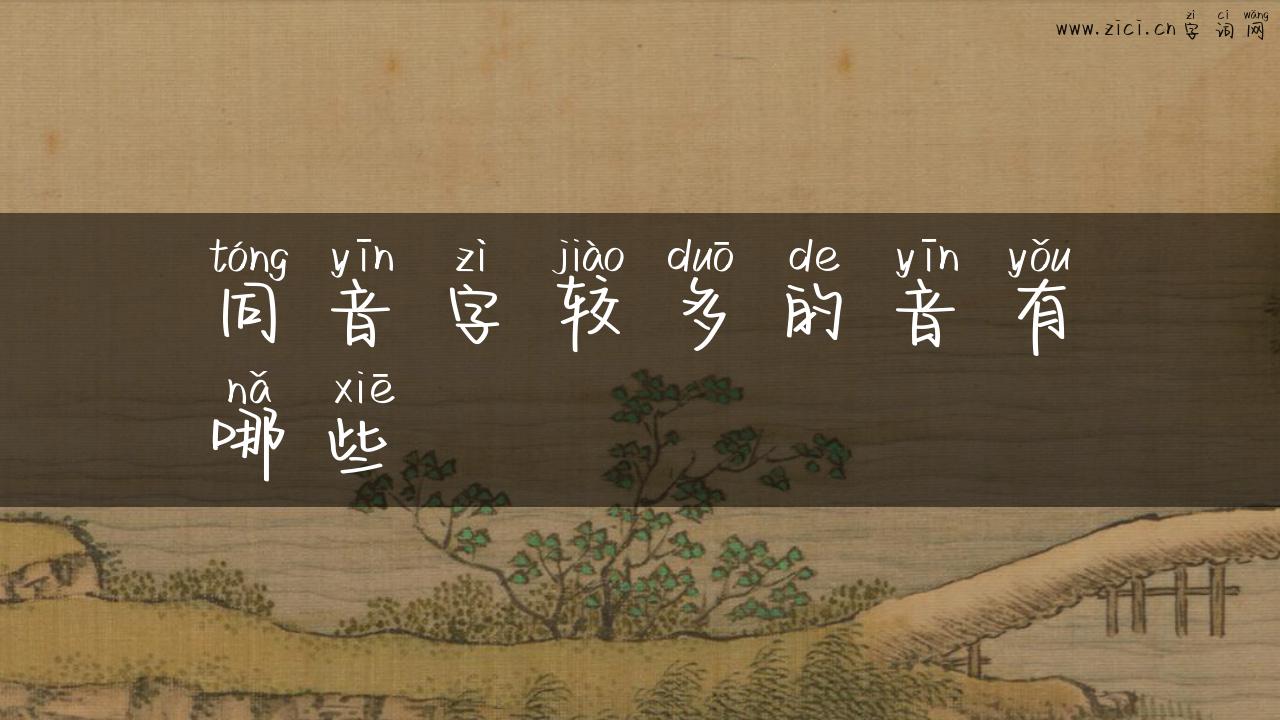 zì cí wǎng
www.zici.cn 字词网
tóng yīn zì jiào duō de yīn yǒu
同音字较多的音有
nǎ xiē
哪些